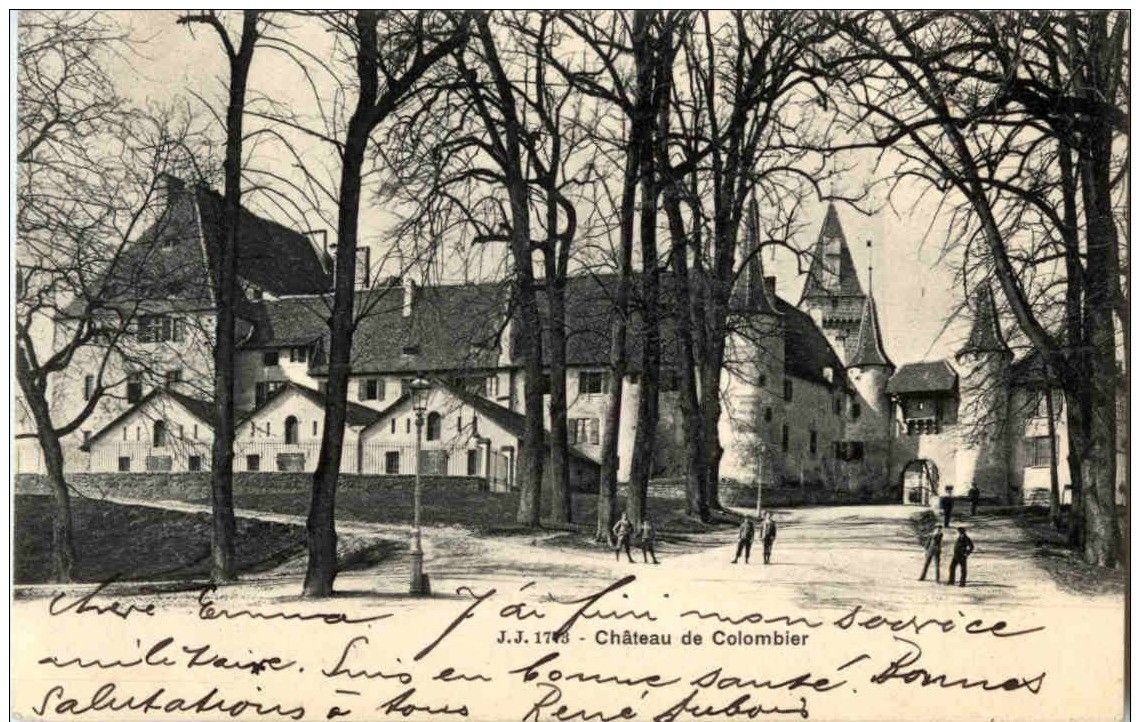 Chère Emma. J'ai fini mon service
J.J. 1773 - Château de Colombier
militaire. Suis en bonne santé. Bonnes
salutations à tous René Dubois